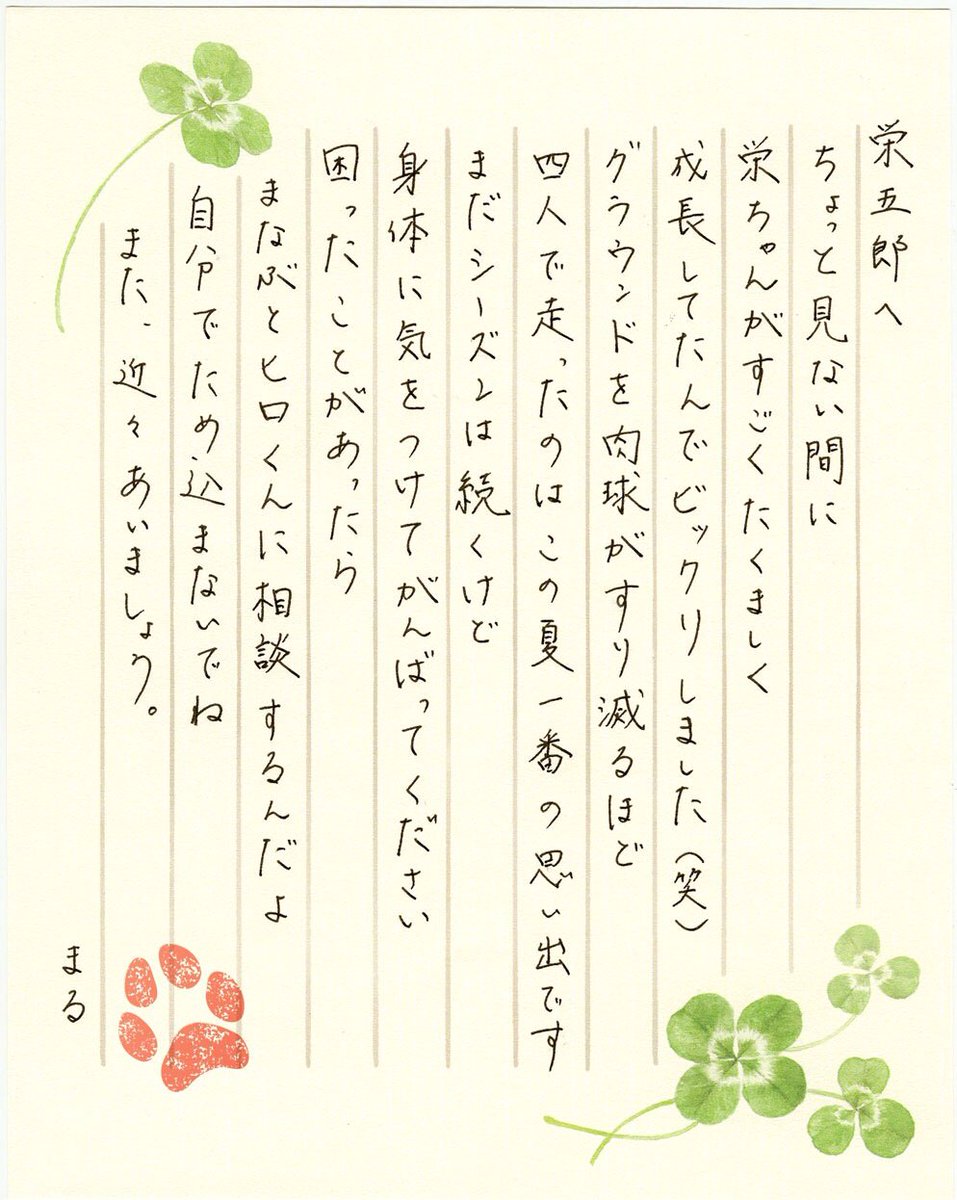 栄五郎へ
ちょっと見ない間に
栄ちゃんがすごくたくましく
成長してたんでビックリしました(笑)
グラウンドを肉球がすり減るほど
四人で走ったのはこの夏一番の思い出です
まだシーズンは続くけど
身体に気をつけてがんばってください
困ったことがあったら
まなぶとヒロくんに相談するんだよ
自分でため込まないでね
また、近々あいましょう。
まる